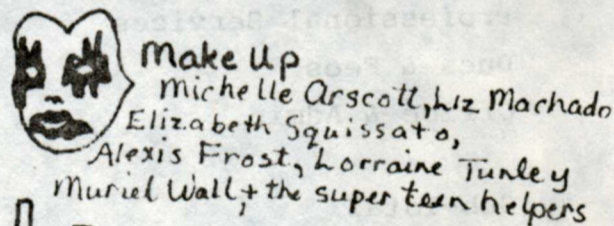 Make Up
Michelle Arscott, Liz Machado
Elizabeth Squissato,
Alexis Frost, Lorraine Tunley
Muriel Wall, + the super teen helpers